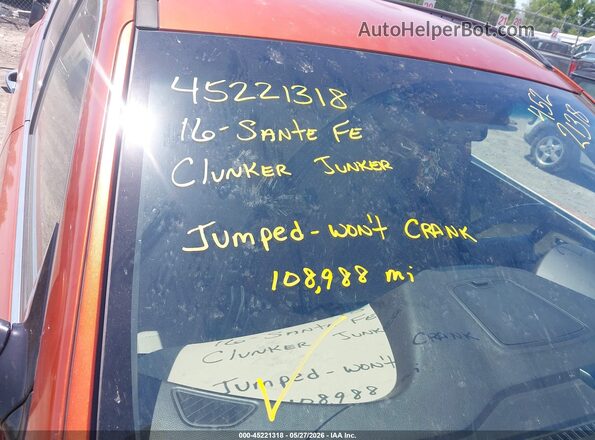 AuctionHelperBot.com
45221318
16-SANTE FE
CLUNKER JUNKER
JUMPED-WON'T CRANK
108,988 mi
452
21318
16-SANTE FE
CLUNKER JUNK
CRANK
JUMPED-WON'T
108988
000-45221318 - 05/27/2026 - IAA Inc.